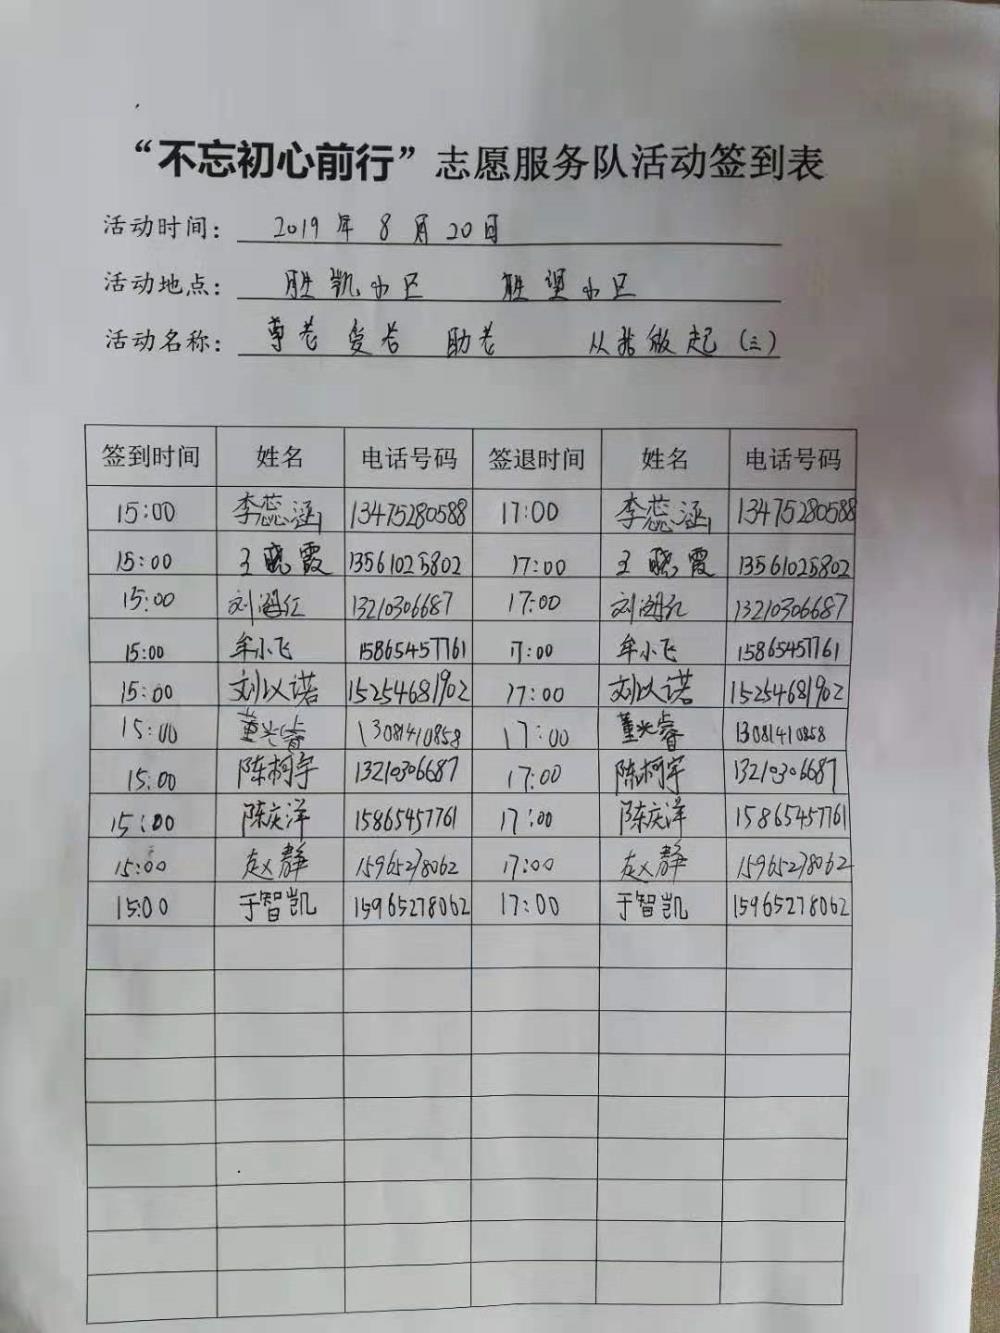 “不忘初心前行”志愿服务队活动签到表
活动时间： 2019年8月20日
活动地点： 胜凯小区 胜望小区
活动名称： 尊老 爱老 助老 从我做起（三）
签到时间 姓名 电话号码 签退时间 姓名 电话号码
15:00 李蕊涵 13475280588 17:00 李蕊涵 13475280588
15:00 王晓霞 13561025802 17:00 王晓霞 13561025802
15:00 刘海红 13210306687 17:00 刘海红 13210306687
15:00 牟小飞 15865457761 17:00 牟小飞 15865457761
15:00 刘以诺 15254681902 17:00 刘以诺 15254681902
15:00 董兴睿 13081410858 17:00 董兴睿 13081410858
15:00 陈柯宇 13210306687 17:00 陈柯宇 13210306687
15:00 陈庆洋 15865457761 17:00 陈庆洋 15865457761
15:00 赵静 15965278062 17:00 赵静 15965278062
15:00 于智凯 15965278062 17:00 于智凯 15965278062